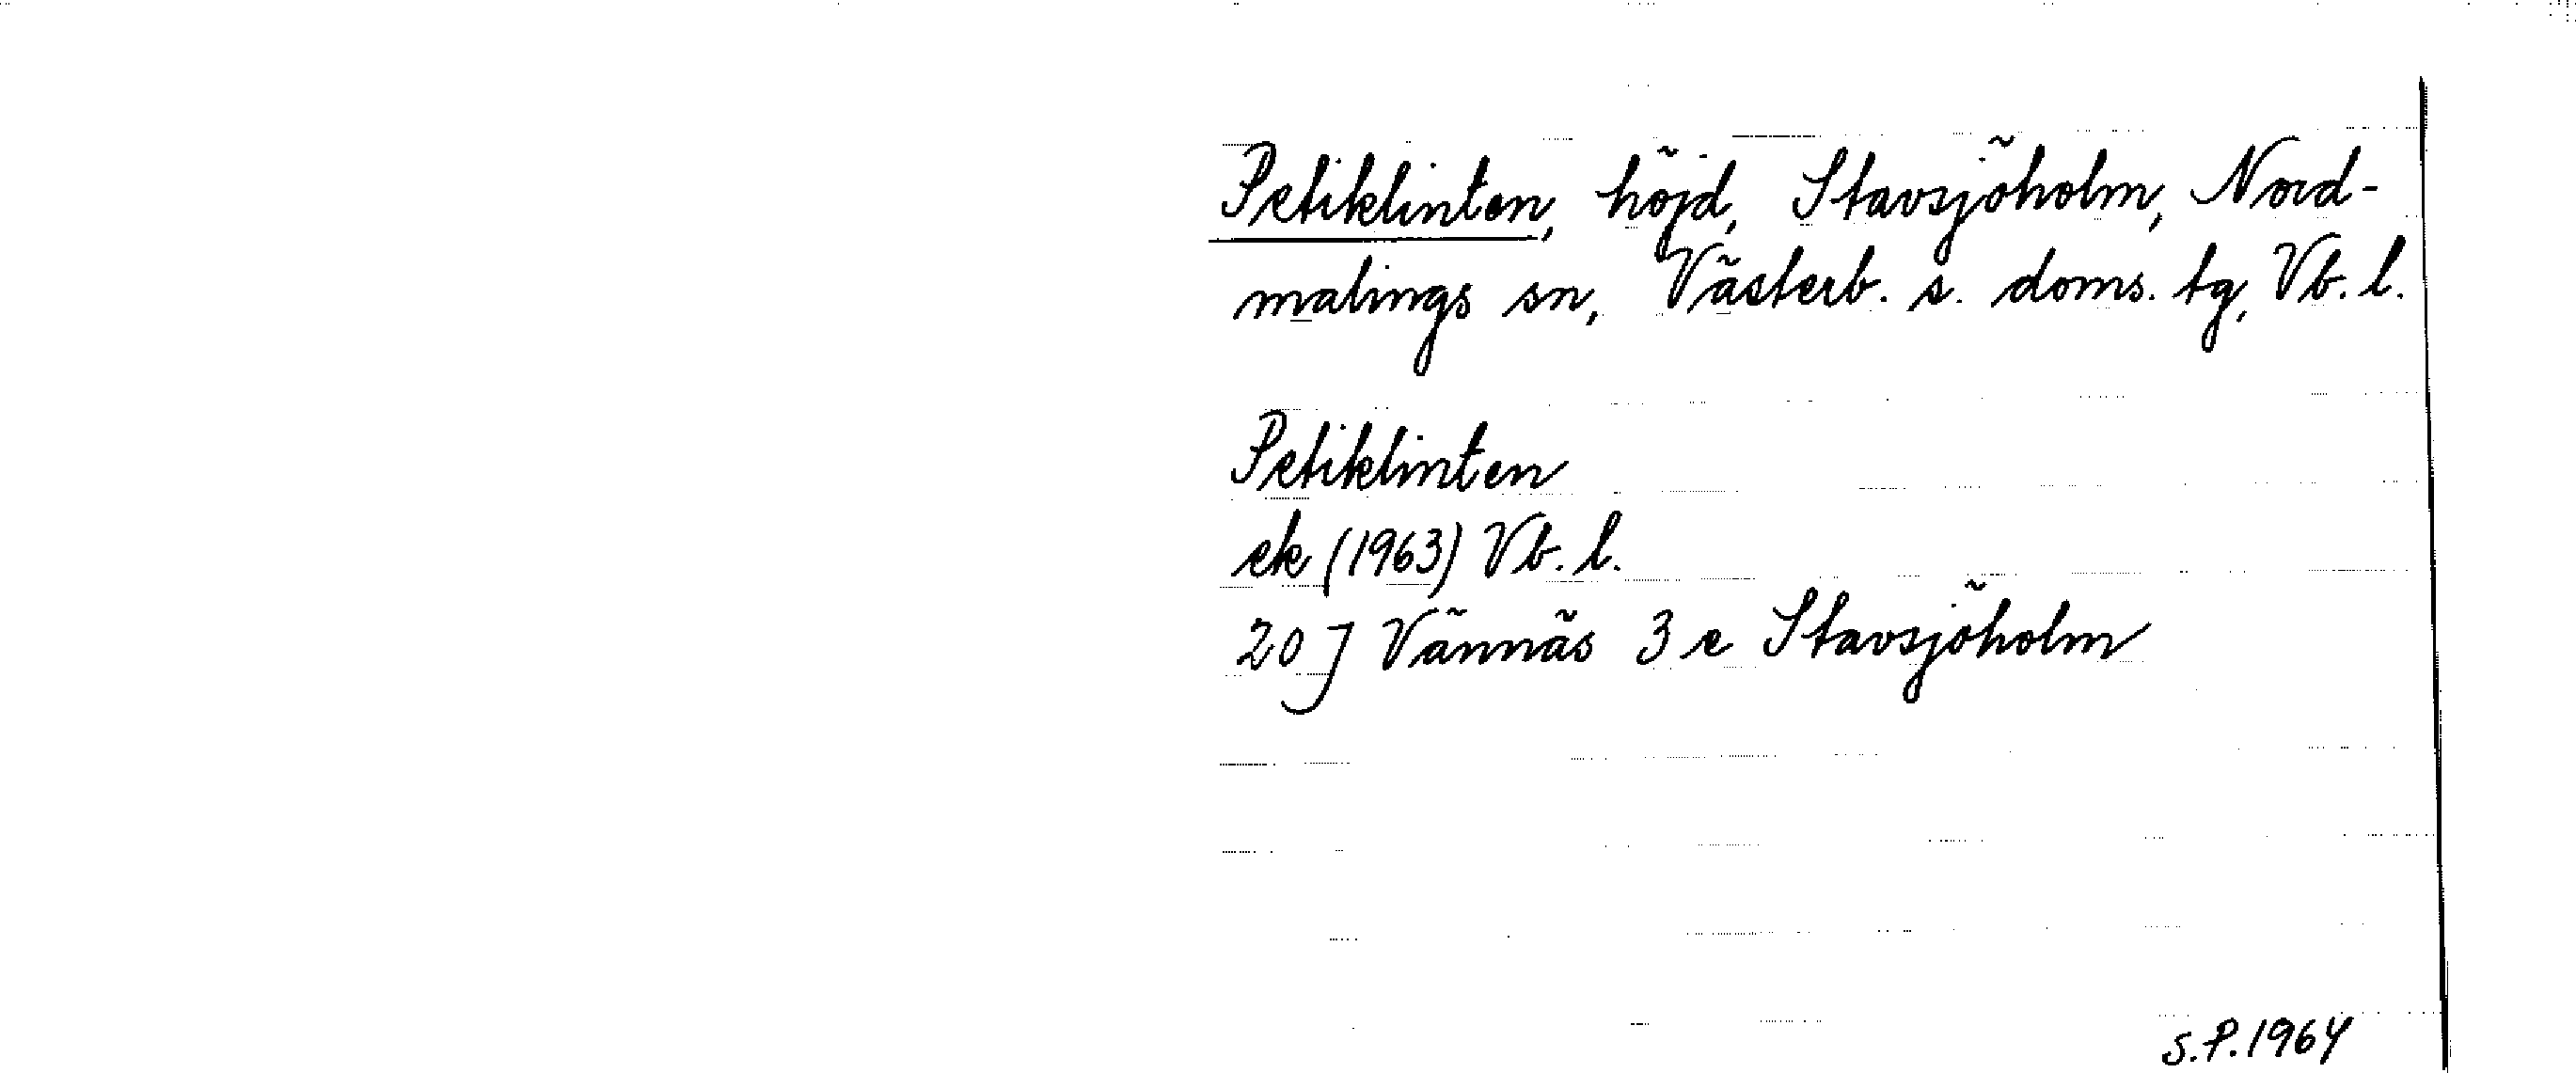 Petiklinten, höjd, Stavsjöholm, Nord-
malings sn, Västerb. s. doms. tg, Vb. l.
Petiklinten
ek (1963) Vb. l.
20 J Vännäs 3 e Stavsjöholm
S.P. 1964